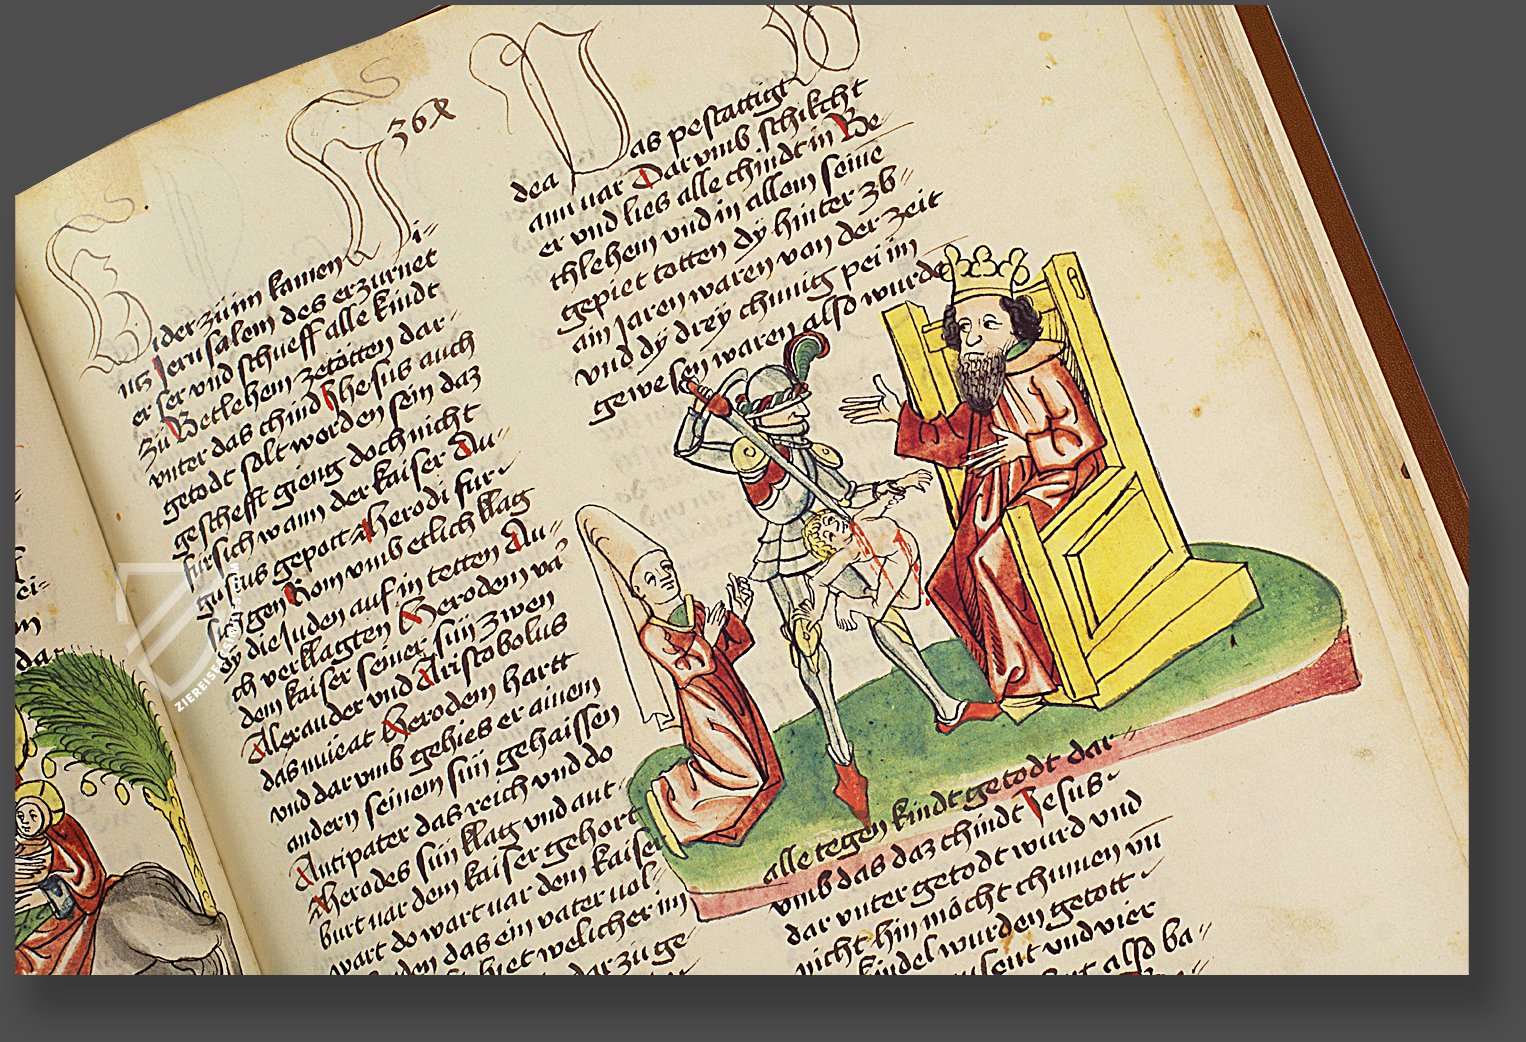 36x
i-
ider zü im kamen
ntz Jerusalem des erzurnet
er ser vnd schueff alle kindt
zü Betlehem zetötten dar-
vnter das chind Jhesus auch
getodt solt worden sein daz
geschefft gieng doch nicht
fursich wann der kaiser Au-
gustus gepott Herodi fur-
sich gen Rom vmb etlich klag
dy die Juden auf in tetten Au-
ch verklagten Herodem vā
dem kaiser seiner sün zwen
Alexander vnd Aristobolus
das mueat Herodem hartt
vnd dar vmb gehies er ainem
andern seinem sün gehaissen
Antipater das reich vnd do
Herodes sün klag vnd ant-
burt uar dem kaiser gehort
wart do wart uar dem kaiser
das ein vater uol-
hiet welicher im
dar zü ge-
Das pestattigt
dea
ann uar Dar vmb schikcht
er vnd lies alle chindt in Be-
thlehem vnd in allem seinē
gepiet totten dy hinter zb-
ain Jaren waren von der zeit
vnd dy drey chunig pei im
gewesen waren also wurden
alle tegen kindt getodt dar-
vmb das daz chindt Jesus
dar vnter getodt wurd vnd
nicht hin möcht chumen vn̄
kindel wurden getött
vnd vier
also ba-
ei-
dar
ZIEREIS